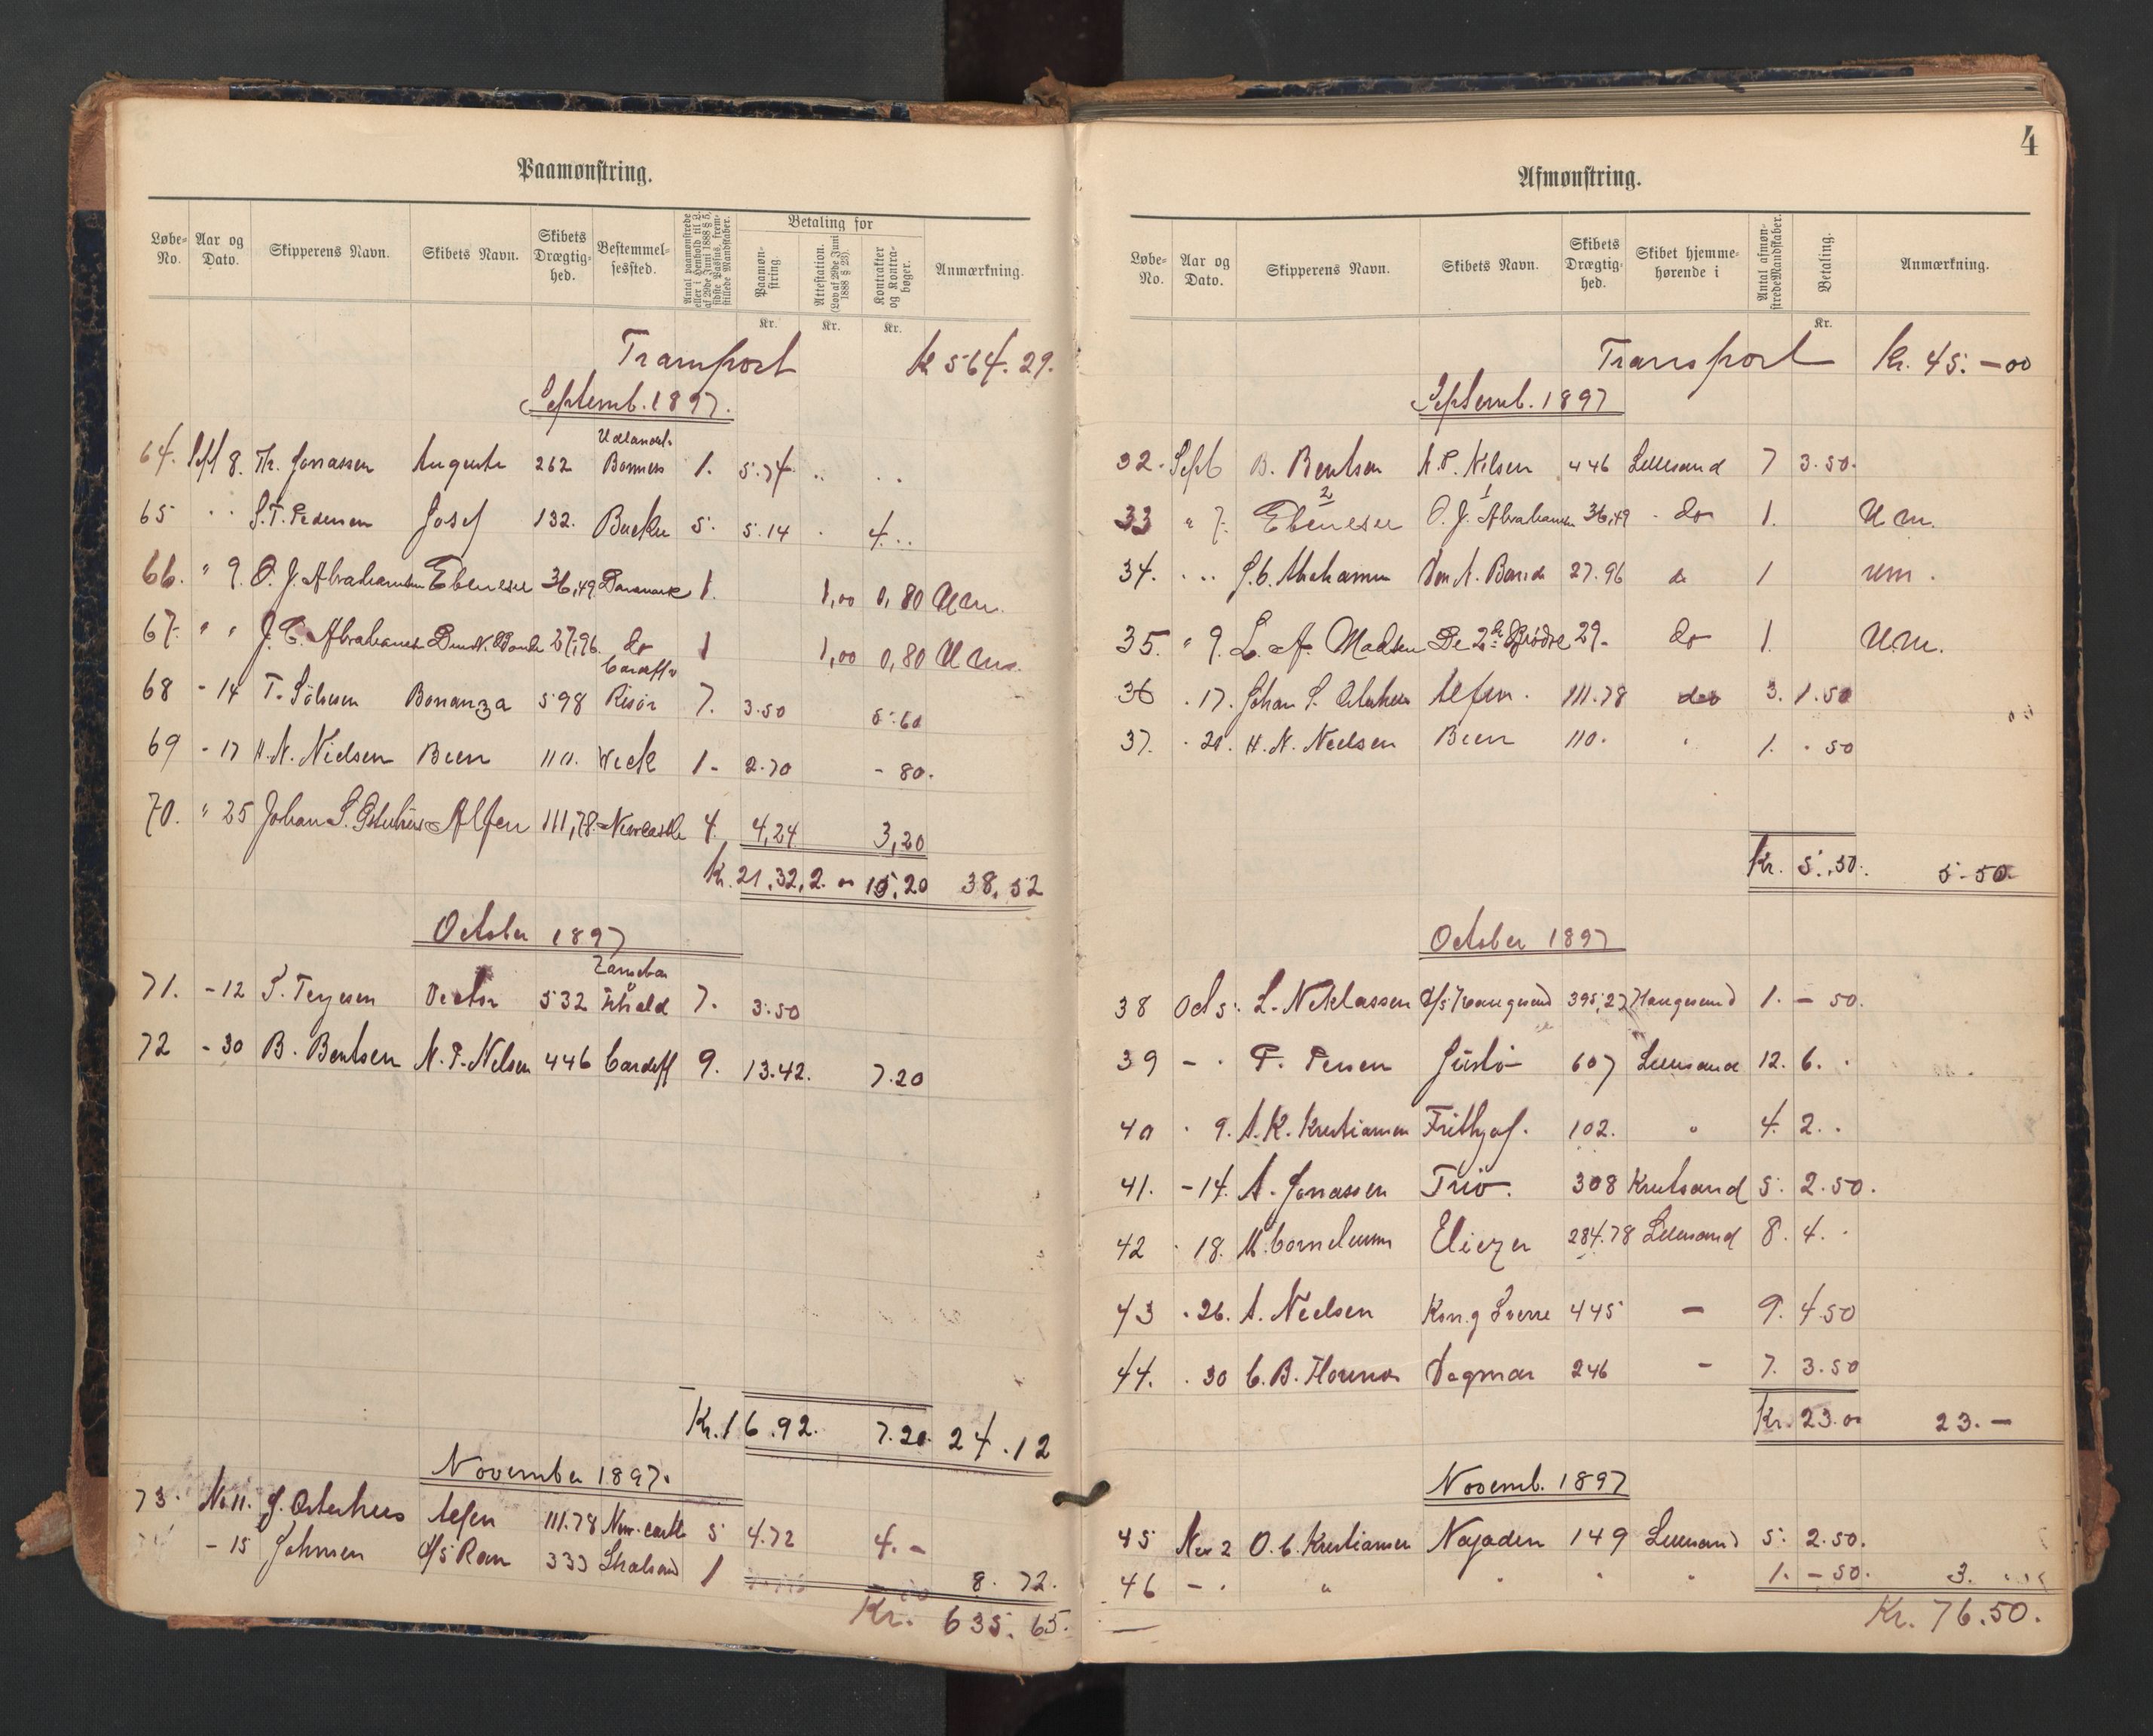 4
Paamønstring.
Løbe-No. Aar og Dato. Skipperens Navn. Skibets Navn. Skibets Drægtighed. Bestemmelsessted. Antal paamønstrede eller i Henhold til § 2 af 29de Juni 1888 § 5, sidste Passus, fremstillede Mandskaber. Betaling for Paamønstring. Attestation. (Lov af 29de Juni 1888 § 28). Kontrakter og Kontrabøger. Anmærkning.
Kr. Kr. Kr.
Transport Kr 564.29.
Septemb. 1897.
64. Sept 8. Th. Jonassen Auguste 262 1. 5.74
65 S. T. Pedersen Josef 132. 5. 5.14 4.
66. " 9. O. J. Abrahamsen Ebeneser 36,49 Danmark 1. 1,00 0,80 U m.
67. " " J. C. Abrahamsen 27,96 do 1 1,00 0,80 U m.
Cardiff
68 - 14 T. Bonanza 598 Risør 7. 3.50 5.60
69 - 17 H. N. Nielsen Bien 110. Wick 1- 2.70 - 80.
70. " 25 Johan S. Alfen 111,78 Newcastle 4. 4,24 3,20
Kr. 21,32, 2. 00 15,20 38,52
October 1897
71. - 12 S. Terjesen Vector 532 7. 3.50
72 - 30 B. Bentsen N. P. Nilsen 446 Cardiff 9. 13.42. 7.20
Kr. 16.92. 7.20. 24.12
November 1897.
73. No 11. J. Osterhus Alfen 111.78 Newcastle 5 4.72 4.-
- 15 Johnsen D/S Ran 333 1
8. 72.
Kr. 635.65.
Afmønstring.
Løbe-No. Aar og Dato. Skipperens Navn. Skibets Navn. Skibets Drægtighed. Skibet hjemmehørende i Antal afmønstrede Mandskaber. Betaling. Anmærkning.
Kr.
Transport Kr. 45.-00
Septemb. 1897
32. Sept B. Bentsen N. P. Nilsen 446 Lillesand 7 3.50.
33 " 7. Ebeneser 2 O. J. Abrahamsen 1 36,49 - do 1. U m.
34. J. C. Abrahamsen 27.96 do 1 um.
35. " 9. L. A. Madsen De 2de Brødre 29- do 1. U.m.
36 . 17. Johan S. Osterhus Alfen. 111.78 do 3. 1.50
37. . 20. H. N. Nielsen Bien 110. " 1. . 50
Kr. 5.50. 5.50
October 1897
38 Oct 5. L. Niklassen D/S Haugesund 395,27 Haugesund 1. - 50.
39 - . P. Persen Justø 607 Lillesand 12. 6. .
40 . 9. A. K. Kristiansen Frithjof. 102. " 4. 2. .
41. - 14. A. Jonassen Trio. 308 Kristsand 5. 2.50.
42 . 18. M. Corneliussen Eliezer 284.78 Lillesand 8. 4. .
43 . 26. A. Nielsen Kong Sverre 445 - 9. 4.50
44. . 30 C. B. Dagmar 246 - 7. 3.50
Kr. 23.00 23.-
Novemb. 1897
45 Nov 2 O. C. Kristiansen Najaden 149 Lillesand 5. 2.50.
46 - . " " " " 1. - 50. 3.
Kr. 76.50.